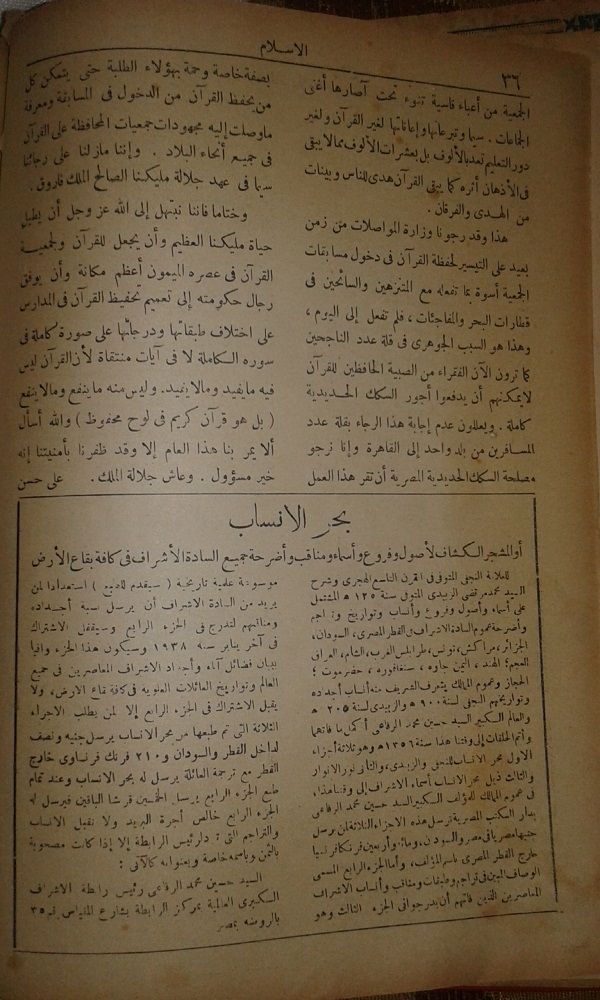 ٣٦
الاسلام
الجمعية من أعباء قاسية تنوء تحت آصارها أغنى
الجماعات . سيما وتبرعاتها وإعاناتها لغير القرآن ولغير
دور التعليم تعد بالألوف بل بعشرات الألوف مما لا يبقى
فى الأذهان أثره كما يبقى القرآن هدى للناس وبينات
من الهدى والفرقان .
هذا وقد رجونا وزارة المواصلات من زمن
بعيد على التيسير لحفظة القرآن فى دخول مسابقات
الجمعية أسوة بما تفعله مع المتنزهين والسائحين فى
قطارات البحر والمفاجئات ، فلم تفعل إلى اليوم ،
وهذا هو السبب الجوهرى فى قلة عدد الناجحين
كما ترون الآن الفقراء من الصبية الحافظين للقرآن
لا يمكنهم أن يدفعوا أجور السكك الحديدية
كاملة . ويعللون عدم إجابة هذا الرجاء بقلة عدد
المسافرين من بلد واحد إلى القاهرة وإنا نرجو
مصلحة السكك الحديدية المصرية أن تقر هذا العمل
بصفة خاصة رحمة بهؤلاء الطلبة حتى يتمكن كل
من يحفظ القرآن من الدخول فى المسابقة ومعرفة
ما وصلت إليه مجهودات جمعيات المحافظة على القرآن
فى جميع أنحاء البلاد . وإننا مازلنا على رجائنا
سيما فى عهد جلالة مليكنا الصالح الملك فاروق .
وختاما فاننا نبتهل إلى الله عز وجل أن يطيل
حياة مليكنا العظيم وأن يجعل للقرآن ولجمعية
القرآن فى عصره الميمون أعظم مكانة وأن يوفق
رجال حكومته إلى تعميم تحفيظ القرآن فى المدارس
على اختلاف طبقاتها ودرجاتها على صورة كاملة فى
سوره الكاملة لا فى آيات منتقاة لأن القرآن ليس
فيه ما يفيد وما لا يفيد. وليس منه ما ينفع وما لا ينفع
( بل هو قرآن كريم فى لوح محفوظ ) والله أسأل
ألا يمر بنا هذا العام إلا وقد ظفرنا بأمنيتنا إنه
خير مسؤول . وعاش جلالة الملك . على حسن
بحر الانساب
أو المشجر الكشاف لأصول وفروع وأسماء ومناقب وأضرحة جميع السادة الأشراف فى كافة بقاع الأرض
للعلامة النجفى المتوفى فى القرن التاسع الهجرى وشرح
السيد محمد مرتضى الزبيدى المتوفى سنة ١٢٠٥ هـ المشتمل
على أسماء وأصول وفروع وأنساب وتواريخ وتراجم
وأضرحة عموم السادة الاشراف فى القطر المصرى ، السودان،
الجزائر، مراكش، تونس، طرابلس الغرب، الشام، العراق
العجم، الهند، اليمن جاوه ، سنغافوره ، حضرموت ،
الحجاز وعموم الممالك يتشرف الشريف منه أنساب أجداده
وتواريخهم النجفى لسنة ٩٠٠ هـ والزبيدى لسنة ١٢٠٥ هـ
والعالم الكبير السيد حسين محمد الرفاعى أكمل ما فاتهما
وأتم الحلقات إلى وقتنا هذا سنة ١٣٥٦ هـ وهو ثلاثة أجزاء
الاول بحر الانساب للنجفى والزبيدى، والثانى نور الانوار
والثالث ذيل بحر الانساب أسماء الاشراف إلى وقتنا هذا
فى عموم الممالك للمؤلف الكبير السيد حسين محمد الرفاعى
بدار الكتب المصرية ترسل هذه الاجزاء الثلاثة لمن يرسل
جنيها مصريا فى مصر والسودان، ومائة وأربعين فرنكا فرنسيا
خارج القطر المصرى باسم المؤلف، وأما الجزء الرابع المسمى
فى تراجم وطبقات ومناقب وأنساب الاشراف
المعاصرين الذين فاتهم أن يدرجوا فى الجزء الثالث وهو
موسوعة علمية تاريخية ( سيقدم للطبع ) استعدادا لمن
يريد من السادة الاشراف أن يرسل نسبة أجداده
ومناقبهم لتدرج فى الجزء الرابع وسيقفل الاشتراك
فى آخر يناير سنة ١٩٣٨ وسيكون هذا الجزء وافيا
ببيان فضائل آباء وأجداد الاشراف المعاصرين فى جميع
العالم وتواريخ العائلات العلوية فى كافة بقاع الارض، ولا
يقبل الاشتراك فى الجزء الرابع إلا لمن يطلب الاجزاء
الثلاثة التى تم طبعها من بحر الانساب يرسل جنيه ونصف
لداخل القطر والسودان و ٢١٠ فرنك فرنساوى خارج
القطر مع ترجمة العائلة يرسل له بحر الانساب وعند تمام
طبع الجزء الرابع يرسل الخمسين قرشا الباقين فيرسل له
الجزء الرابع خالص أجرة البريد ولا نقبل الانساب
والتراجم التى ترد لرئيس الرابطة إلا إذا كانت مصحوبة
بالثمن وباسمه خاصة وبعنوانه كالآتى :
السيد حسين محمد الرفاعى رئيس رابطة الاشراف
الكبيرى العالمية بمركز الرابطة بشارع المقياس نمرة ٣٥
بالروضة بمصر